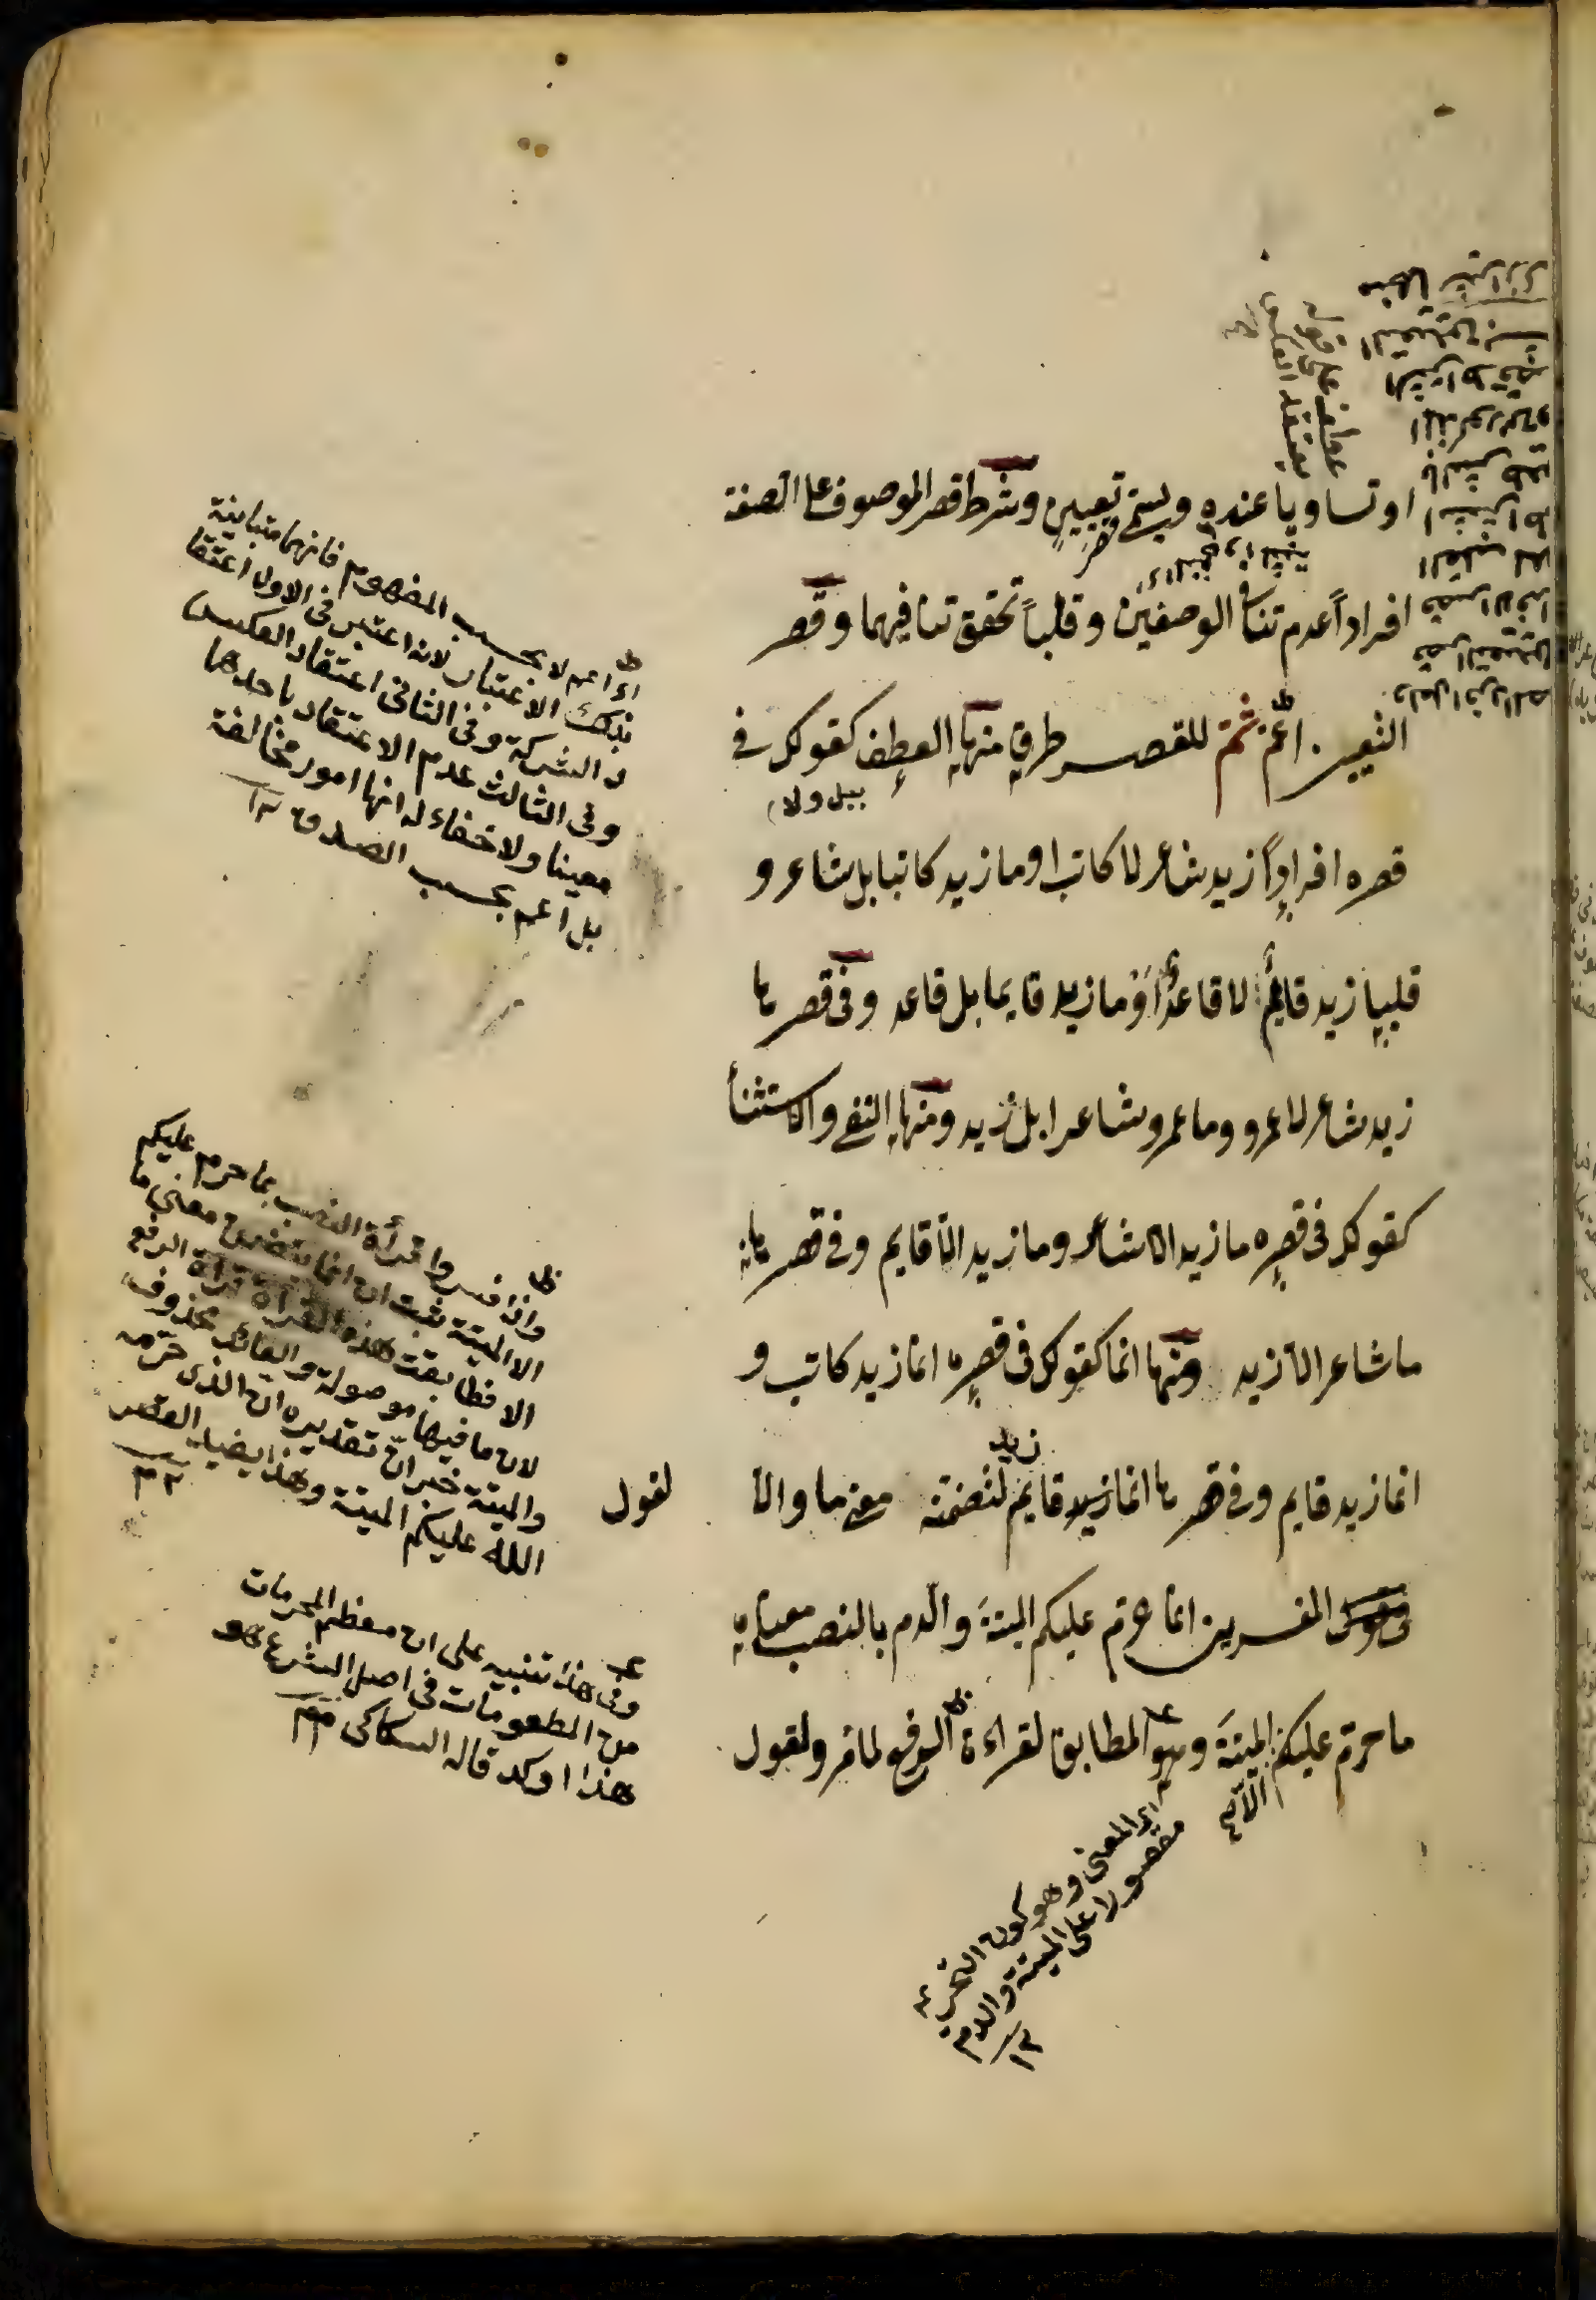 او تساويا عنده ويسمى تعيين وشرط قصر الموصوف على الصفة
افراداً عدم تنافى الوصفين وقلباً تحقق تنافيهما وقصر
التعيين اعمّ ثمّ للقصر طرق منها العطف كقولك فى
ببل ولا
قصره افراداً زيد شاعر لا كاتب او ما زيد كاتبا بل شاعر و
قلبا زيد قايم لا قاعد او ما زيد قايما بل قاعد وفى قصرها
زيد شاعر لا عمرو وما عمرو شاعرا بل زيد ومنها النفى والاستثنأ
كقولك فى قصره ما زيد الا شاعر وما زيد الا قايم وفى قصرها
ما شاعر الا زيد ومنها انما كقولك فى قصره انما زيد كاتب و
انما زيد قايم وفى قصرها انما قايم زيد لتضمنه معنى ما والا لقول
المفسرين انما حرّم عليكم الميتةَ والدم بالنصب معناه
ما حرّم عليكم الا الميتةَ وهو المطابق لقراءة الرفع لما مر ولقول
اى اعم لا بحسب المفهوم فانها متباينة
بذلك الاعتبار لانه اعتبر فى الاول اعتقا
د الشركة وفى الثانى اعتقاد العكس
وفى الثالث عدم الاعتقاد باحدها
معينا ولا خفاء له انها امور مخالفة
بل اعم بحسب الصدق ١٢
واذا فسروا قرأة النصب بما حرم عليكم
الا الميتة ثبت ان انما يتضمن معنى ما
الا فطابقت هذه القرأة قرأة الرفع
لان ما فيها موصولة والعائد محذوف
والميتة خبر انّ تقديره ان الذى حرّمه
الله عليكم الميتة وهذا يفيد القصر
١٢ م
وفى هذا تنبيه على ان معظم المحرمات
من المطعومات فى اصل الشرع هو
هذا اوكد قاله السكاكى
اى المعنى وهو كون التحريم
مقصورا على الميتة والدم
١٢
عطف على قوله
يعتقد العكس